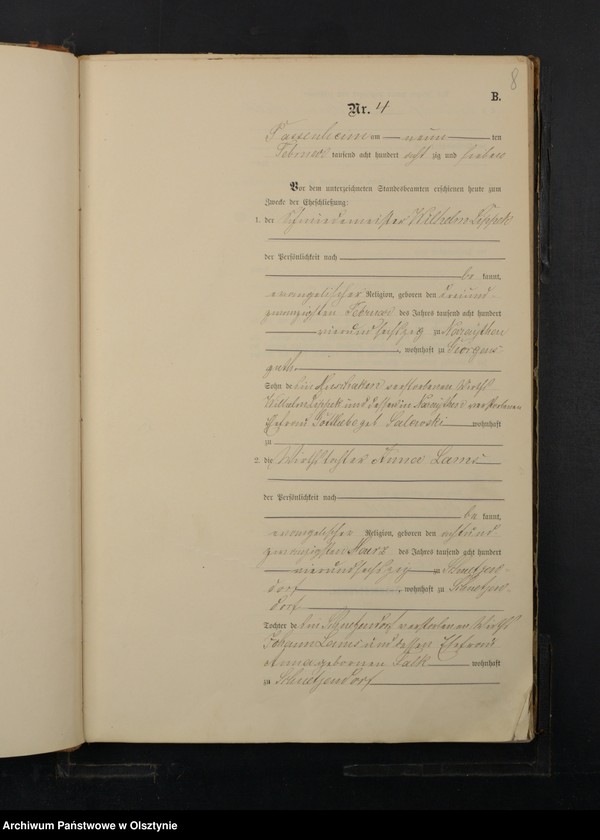 8
B.
Nr. 4
Passenheim am neun ten
Februar tausend acht hundert acht zig und sieben
Vor dem unterzeichneten Standesbeamten erschienen heute zum
Zwecke der Eheschließung:
1. der Schmiedemeister Wilhelm Zeppek
der Persönlichkeit nach
be kannt,
evangelischer Religion, geboren den dreiund-
zwanzigsten Februar des Jahres tausend acht hundert
vierundsechszig zu Narajthen
, wohnhaft zu Georgens
guth
Sohn des in verstorbenen Wirth
Wilhelm Zeppek und dessen in Narajthen verstorbenen
Ehefrau geb wohnhaft
zu
2. die Wirthstochter Anna Lams
der Persönlichkeit nach
be kannt,
evangelischer Religion, geboren den achtund-
zwanzigsten Maerz des Jahres tausend acht hundert
vierundsechszig zu Scheufels-
dorf , wohnhaft zu
dorf
Tochter des in verstorbenen Wirth
Johann Lams und dessen Ehefrau
Anna gebornen Falk wohnhaft
zu
Archiwum Państwowe w Olsztynie